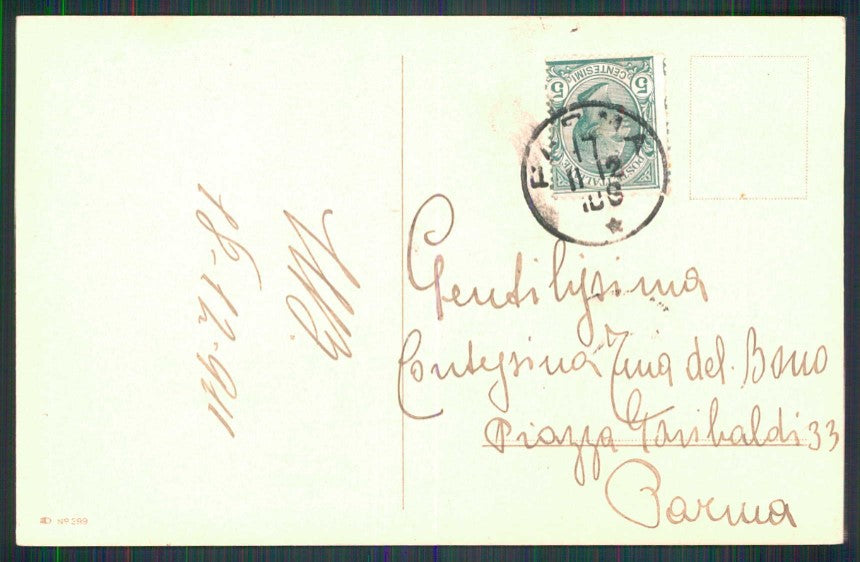 5 CENTESIMI 5
POSTE ITALIANE
PARMA
17
11 12
18-12-911
Gentilissima
Contessina Zina del Bono
Piazza Garibaldi 33
Parma
Nº 299